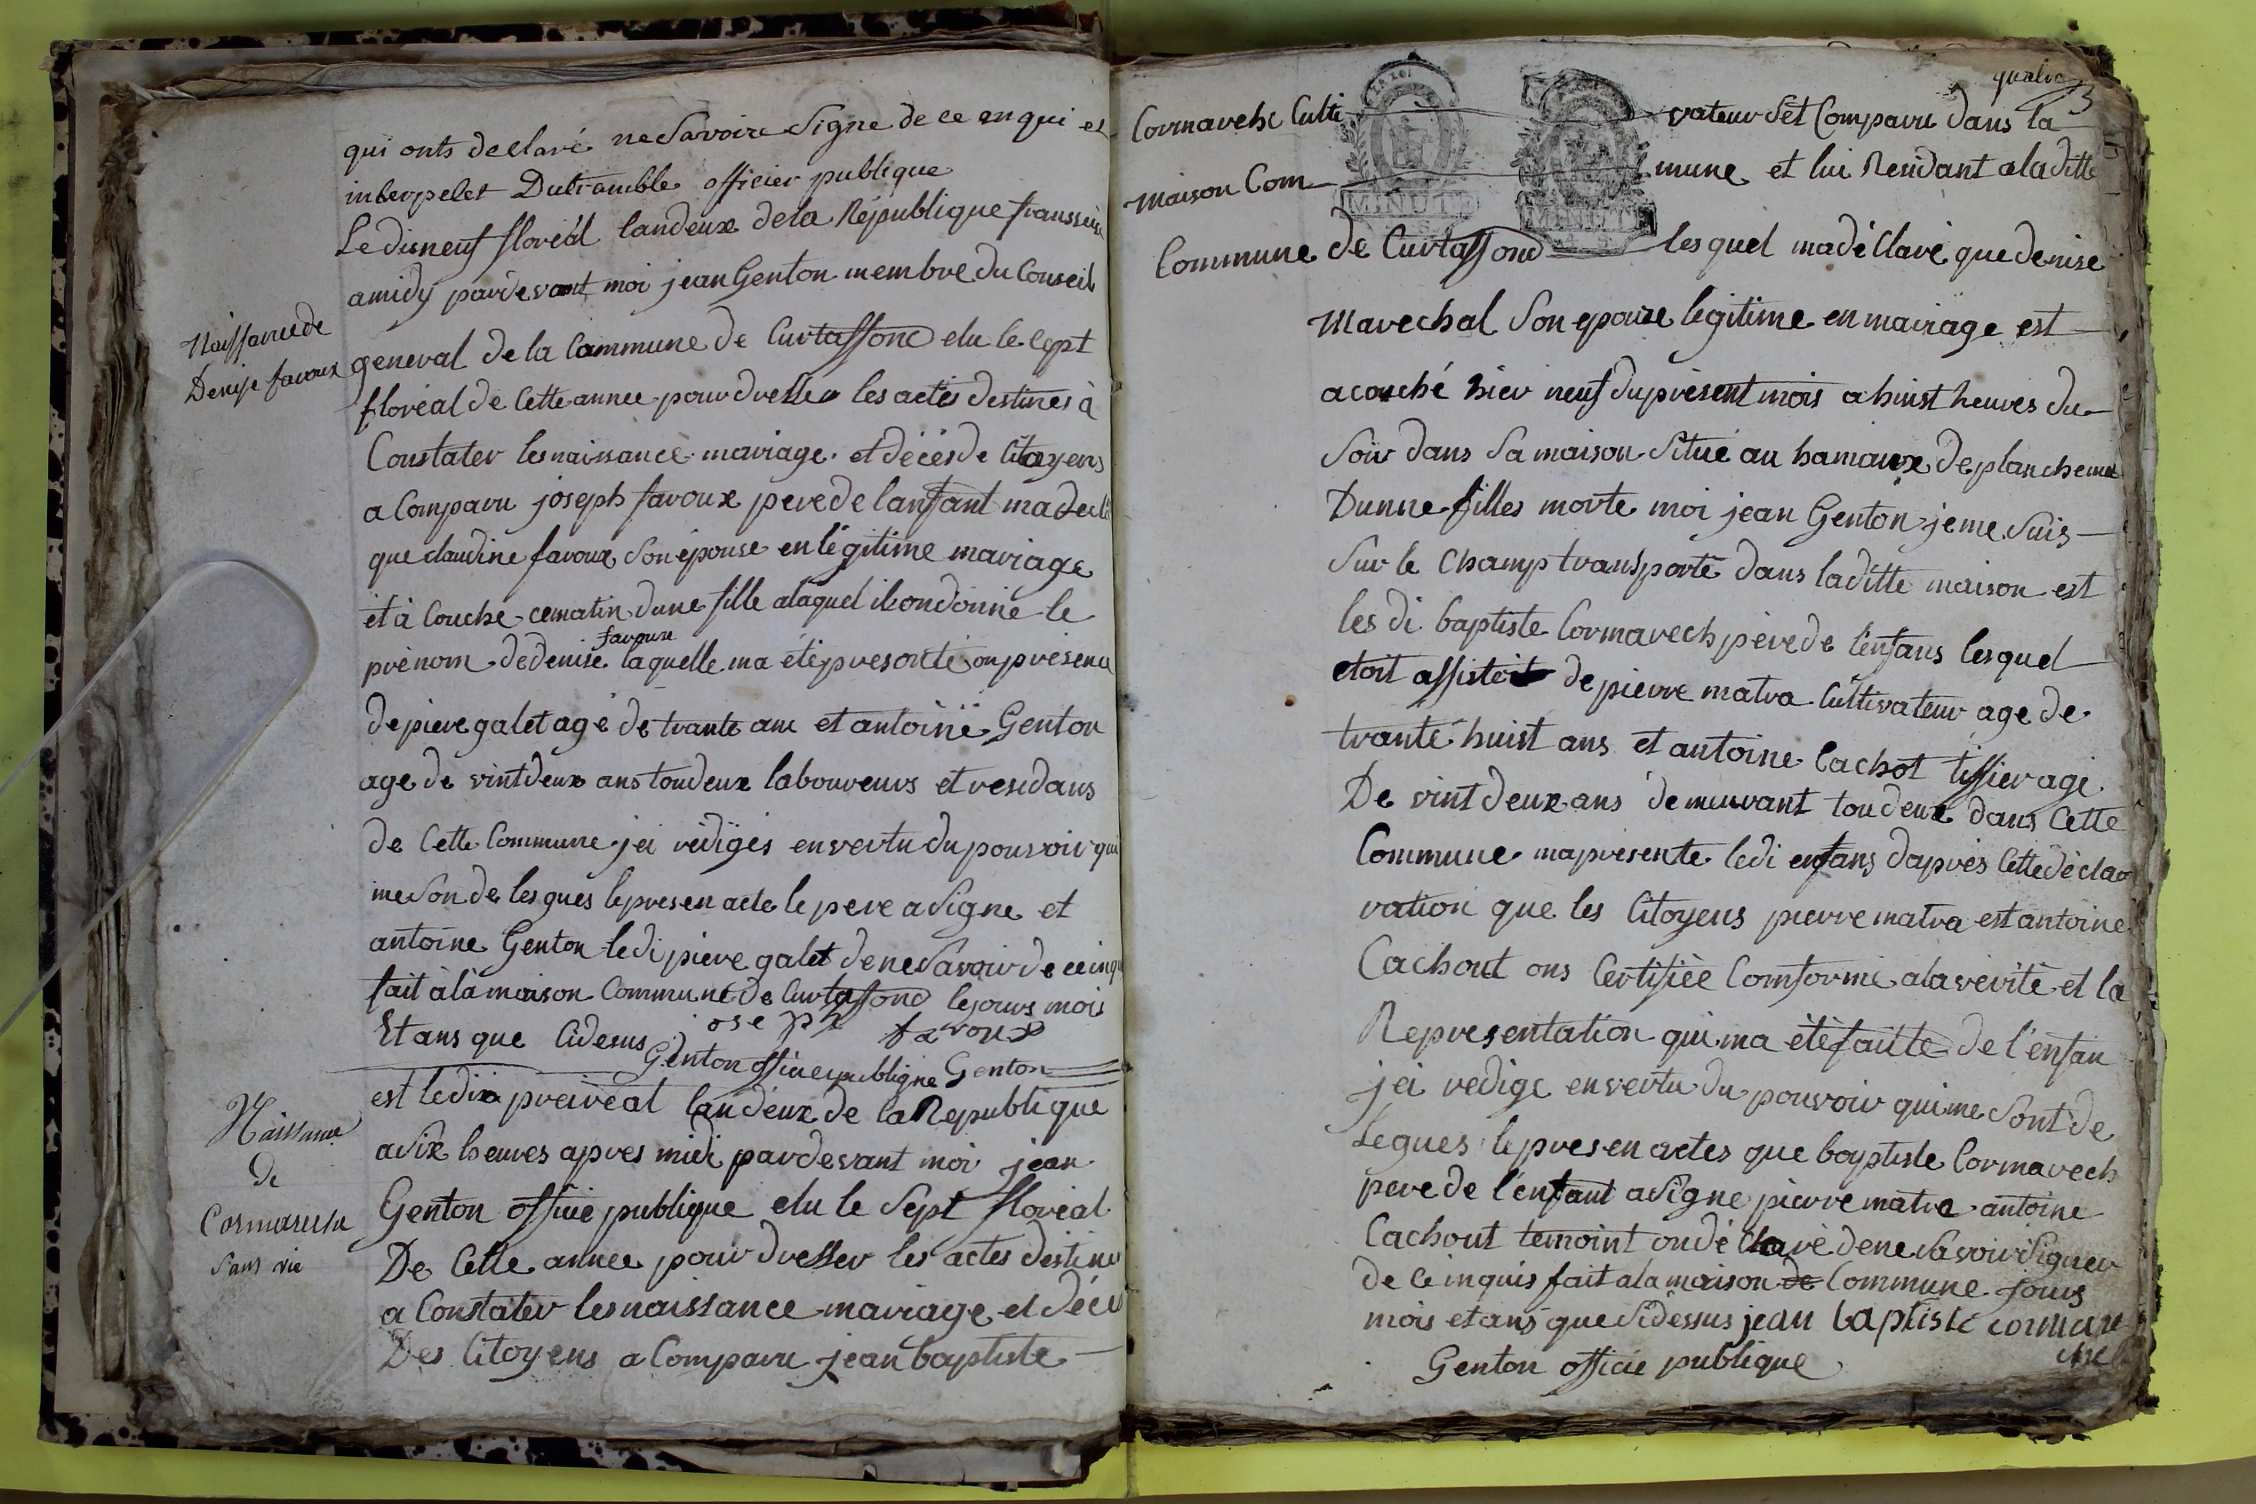 qui onts declaré ne Savoire Signe de ce en qui et
interpelet Dutramble officier publique
Le disneuf floréal landeux dela République franssoise
amidy pardevant moi jean Genton membre du Conseil
Naissance de
Denise favoux
general de la Commune de Curtassonc elu le cept
floréal de Cette annee pour dresser les actes destines à
Constater les naissance mariage et décés de Citoyens
a Comparu joseph favoux pere de lanfant ma decla
que claudine favoux Son épouse en légitime mariage
et à Couche cematin dune fille alaquel ilondonné le
favoux
prénom dedenise laquelle ma étépresonté onprésenu
depiere galet agé de trante anc et antoine Genton
age de vintdeux ans toudeux laboureurs et residans
de Cette Commune jei rédigés envertu du pouvoir qui
me Son de lesgues lepresen acte le pere a Signe et
antoine Genton ledi piere galet dene Savoir de ceinqu
fait à la maison Commune de Curtassonc le jours mois
Et ans que Cidesus joseph favoux
Genton officiepublique Genton
Naissance
de
Cormareche
Sans vie
est ledix preireal landeux de la Republique
a Six heures apres midi pardevant moi jean
Genton officie publique elu le Sept floréal
De Cette annee pour dresser les actes destines
a Constater les naissance mariage et déces
Des Citoyens a Comparu jean baptiste
quatre
3
LA LOI
MINUTE
MINUTE
Cormareche Culti vateur Sét Comparu dans la
maison Com mune et lui Residant a laditte
Commune de Curtassond lesquel madéclaré que denise
Marechal Son epouze legitime en mariage est
acouché hier neuf duprésent mois a huist heures du
Soir dans Sa maison Situé au hamaux de planchemel
Dunne filles morte moi jean Genton jeme Suis
Sur le Champ transporté dans laditte maison est
les di baptiste Cormarech pére de lenfans lesquel
etoit assisteit de pierre matra Cultivateur age de
tranté huist ans et antoine Cachot tissier agé
De vint deux ans demeurant toudeux dans Cette
Commune mapresente ledi enfans dapres Cettedécla
ration que les Citoyens pierre matra est antoine
Cachout ons Certifiée Comformé a la vérité et la
Representation qui ma étéfaitte de l'enfan
jei redige envertu du pouvoir quime Sont de
Legues le presen actes que bayptiste Cormarech
pere de l'enfant a Signe pierre matra antoine
Cachout temoint ondéclaré dene Savoir Signer
de Ceinquis fait a la maison de Commune jours
mois et ans que Sidessus jean baptiste cormare
che
Genton officie publique